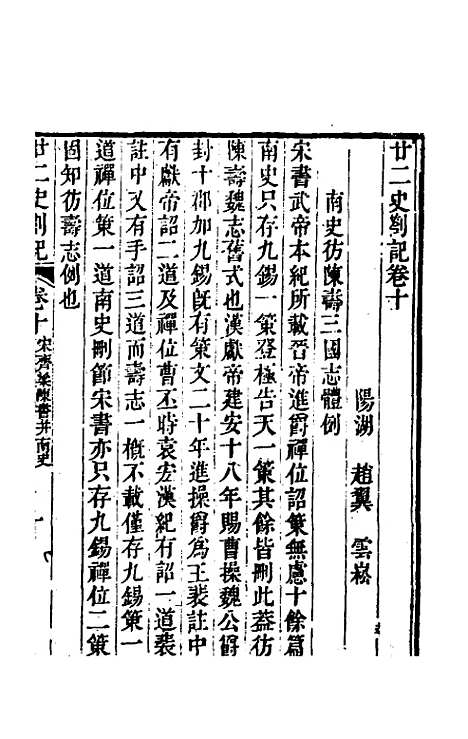 廿二史劄記卷十
陽湖 趙翼 雲崧
南史彷陳壽三國志體例
宋書武帝本紀所載晉帝進爵禪位詔策無慮十餘篇
南史只存九錫一策登極告天一策其餘皆刪此葢彷
陳壽魏志舊式也漢獻帝建安十八年賜曹操魏公爵
封十郡加九錫旣有策文二十年進操爵爲王裴註中
有獻帝詔二道及禪位曹丕時袁宏漢紀有詔一道裴
註中又有手詔三道而壽志一槪不載僅存九錫策一
道禪位策一道南史刪節宋書亦只存九錫禪位二策
固知彷壽志例也
廿二史劄記 卷十 宋齊梁陳書并南史 一